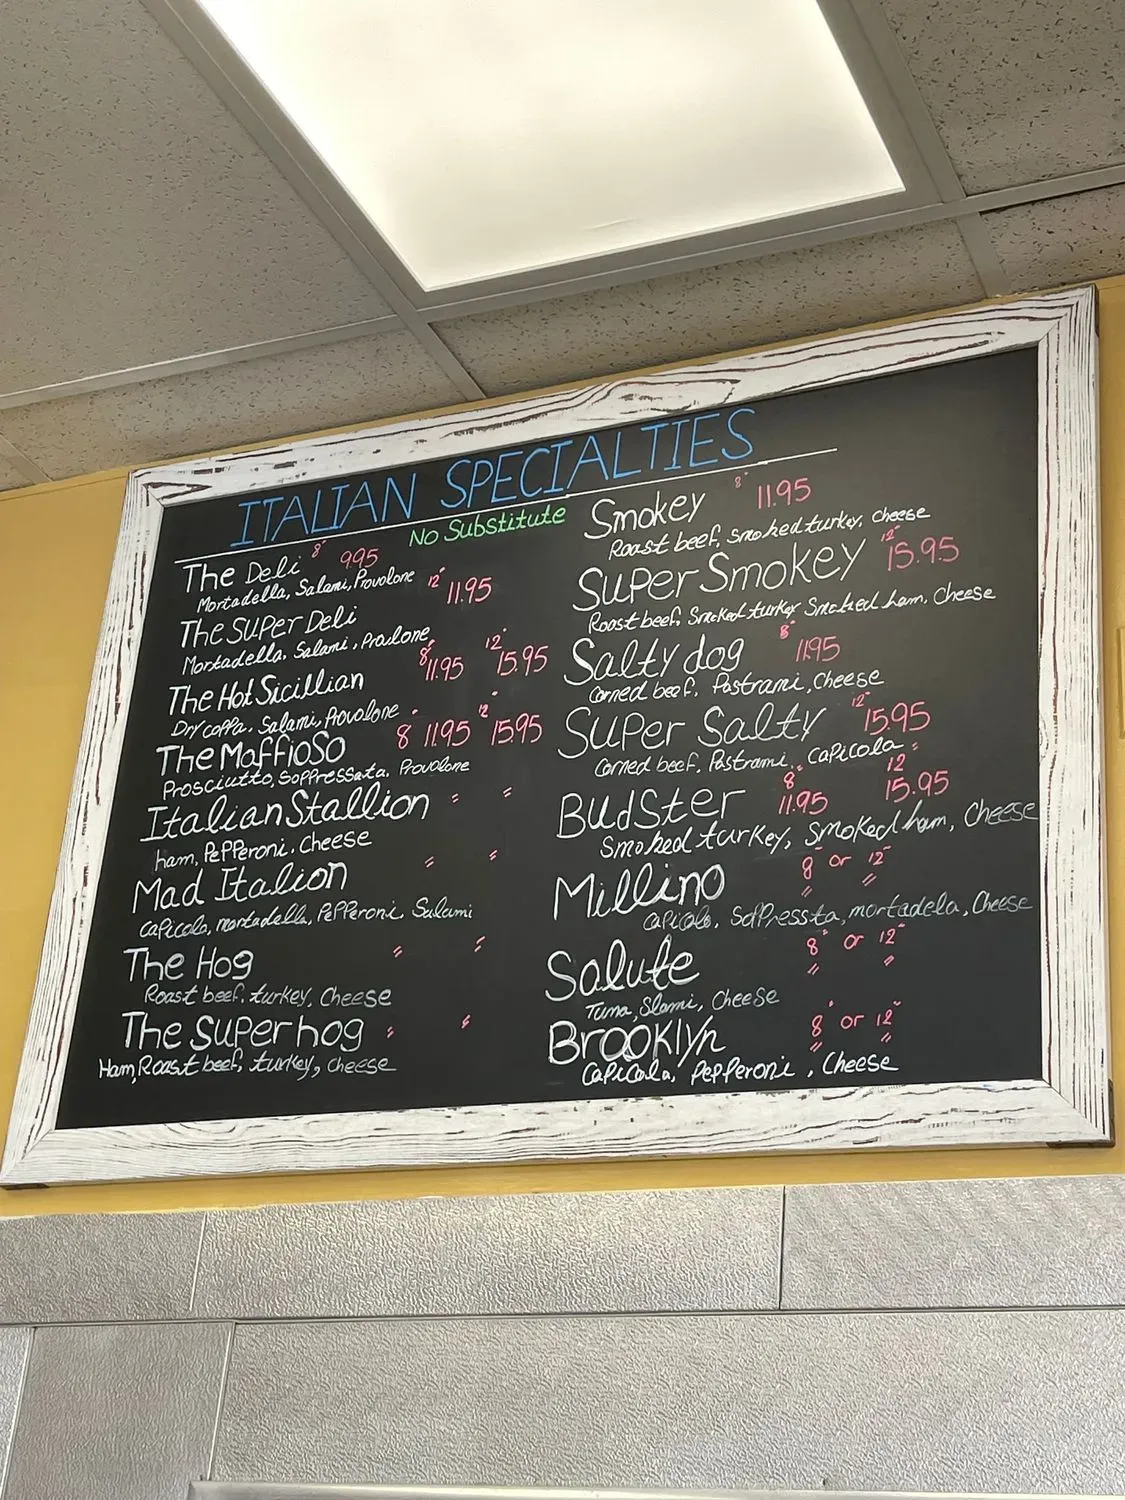 ITALIAN SPECIALTIES
No Substitute
The Deli 8" 9.95
Mortadella, Salami, Provolone
12" 11.95
The SUPER DELi
Mortadella, Salami, Provlone
8" 11.95 12" 15.95
The Hot Sicillian
Dry coppa, Salami, Provolone
8" 11.95 12" 15.95
The MaffioSo
Prosciutto, Soppressata, Provolone
Italian Stallion " "
ham, PePPeroni, Cheese
Mad Italion " "
Capicola, mortadella, PePPeroni, Salami
The Hog " "
Roast beef, turkey, Cheese
The Super hog " "
Ham, Roast beef, turkey, cheese
Smokey 8" 11.95
Roast beef, Smoked turkey, cheese
Super Smokey 12" 15.95
Roast beef, Smoked turkey Smoked ham, Cheese
Salty dog 8" 11.95
Corned beef, Pastrami, Cheese
Super Salty 12" 15.95
Corned beef, Pastrami, Capicola
BUdSter 8" 11.95 12" 15.95
Smoked turkey, Smoked ham, Cheese
Millino 8" or 12"
" "
Capicolo, SoPPressta, mortadela, Cheese
Salute 8" or 12"
" "
Tuna, Slami, Cheese
Brooklyn 8" or 12"
" "
CaPiCola, PePPeroni, Cheese